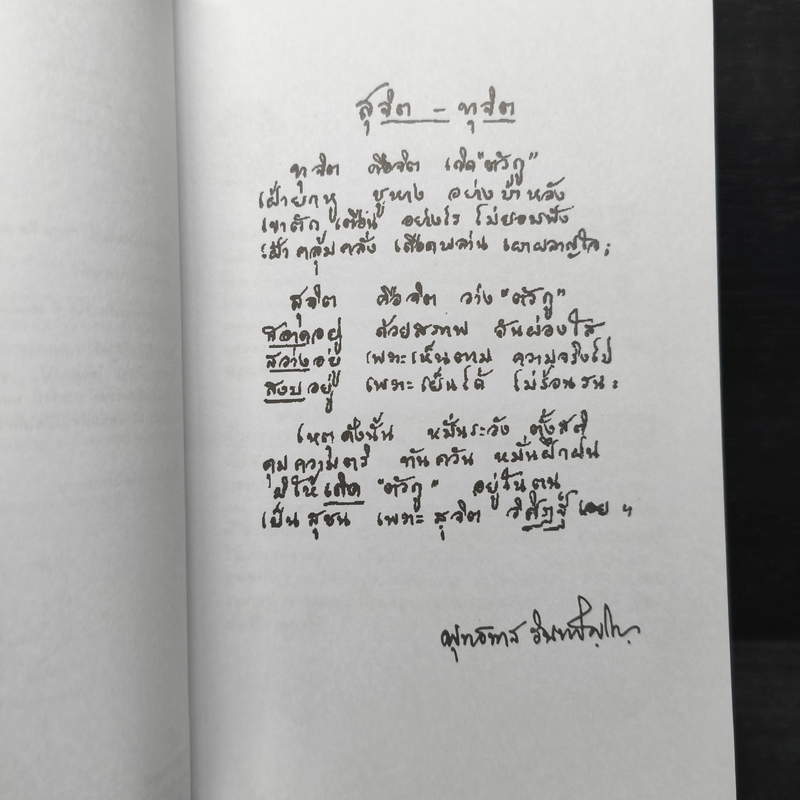 สุจิต – ทุจิต
ทุจิต คือจิต เกิด"ตัวกู"
เฝ้ายกหู ชูหาง อย่างบ้าหลัง
เขาตัก เตือน อย่างไร ไม่ยอมฟัง
เฝ้าคลุ้มคลั่ง เดือดพล่าน เผาผลาญใจ ;
สุจิต คือจิต ว่าง "ตัวกู"
สอาดอยู่ ด้วยสภาพ อันผ่องใส
สว่างอยู่ เพราะเห็นตาม ความจริงไป
สงบอยู่ เพราะเย็นได้ ไม่ร้อนรน :
เหตุดังนั้น หมั่นระวัง ตั้งสติ
คุมความตริ ทันควัน หมั่นฝึกฝน
มิให้เกิด "ตัวกู" อยู่ในตน
เป็นสุชน เพราะสุจิต วิศิฏฐ์ เอย ฯ
พุทธทาส อินทปัญโญ